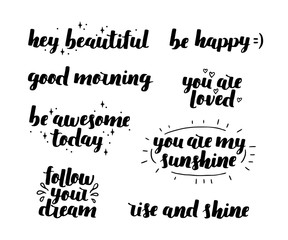 hey beautiful
be happy:)
good morning
you are
loved
be awesome
today
you are my
sunshine
follow
your
dream
rise and shine